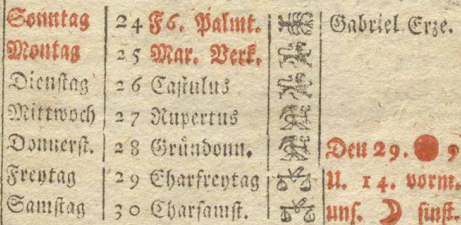 Sonntag 24 F6. Palmt. Gabriel Erze.
Montag 25 Mar. Verk.
Dienstag 26 Castulus
Mittwoch 27 Rupertus
Donnerst. 28 Gründonn. Den 29. 9
Freytag 29 Charfreytag U. 14. vorm.
Samstag 30 Charsamst. uns. ☽ finst.